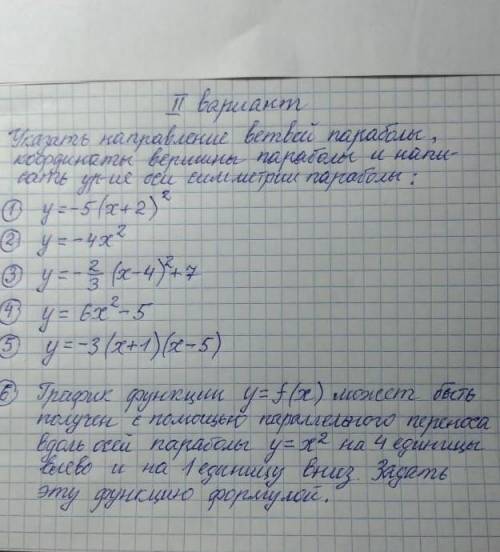 II вариант
Указать направление ветвей параболы,
координаты вершины параболы и напи-
сать ур-ие оси симметрии параболы:
① y=-5(x+2)²
② y=-4x²
③ y=-2/3(x-4)²+7
④ y=6x²-5
⑤ y=-3(x+1)(x-5)
⑥ График функции y=f(x) может быть
получен с помощью параллельного переноса
вдоль осей параболы y=x² на 4 единицы
влево и на 1 единицу вниз. Задать
эту функцию формулой.